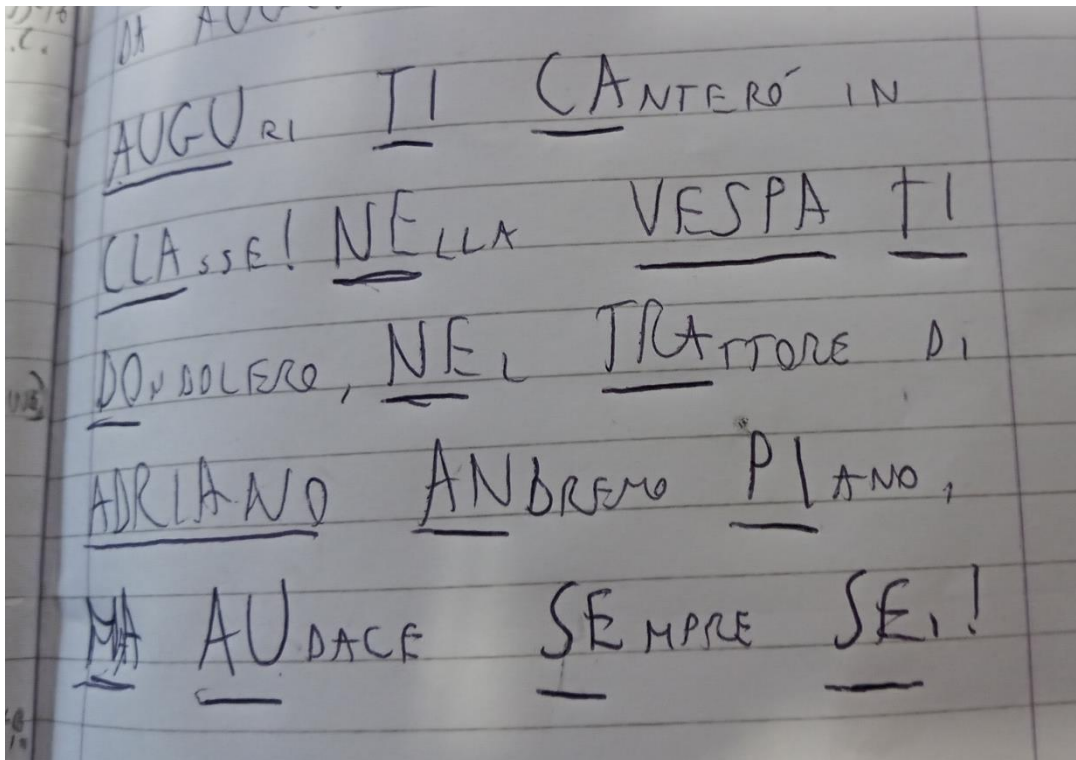 DA
AUGURI TI CANTERÓ IN
CLASSE! NELLA VESPA TI
DONDOLERO, NEL TRATTORE DI
ADRIANO ANDREMO PIANO,
MA AUDACE SEMPRE SEI!